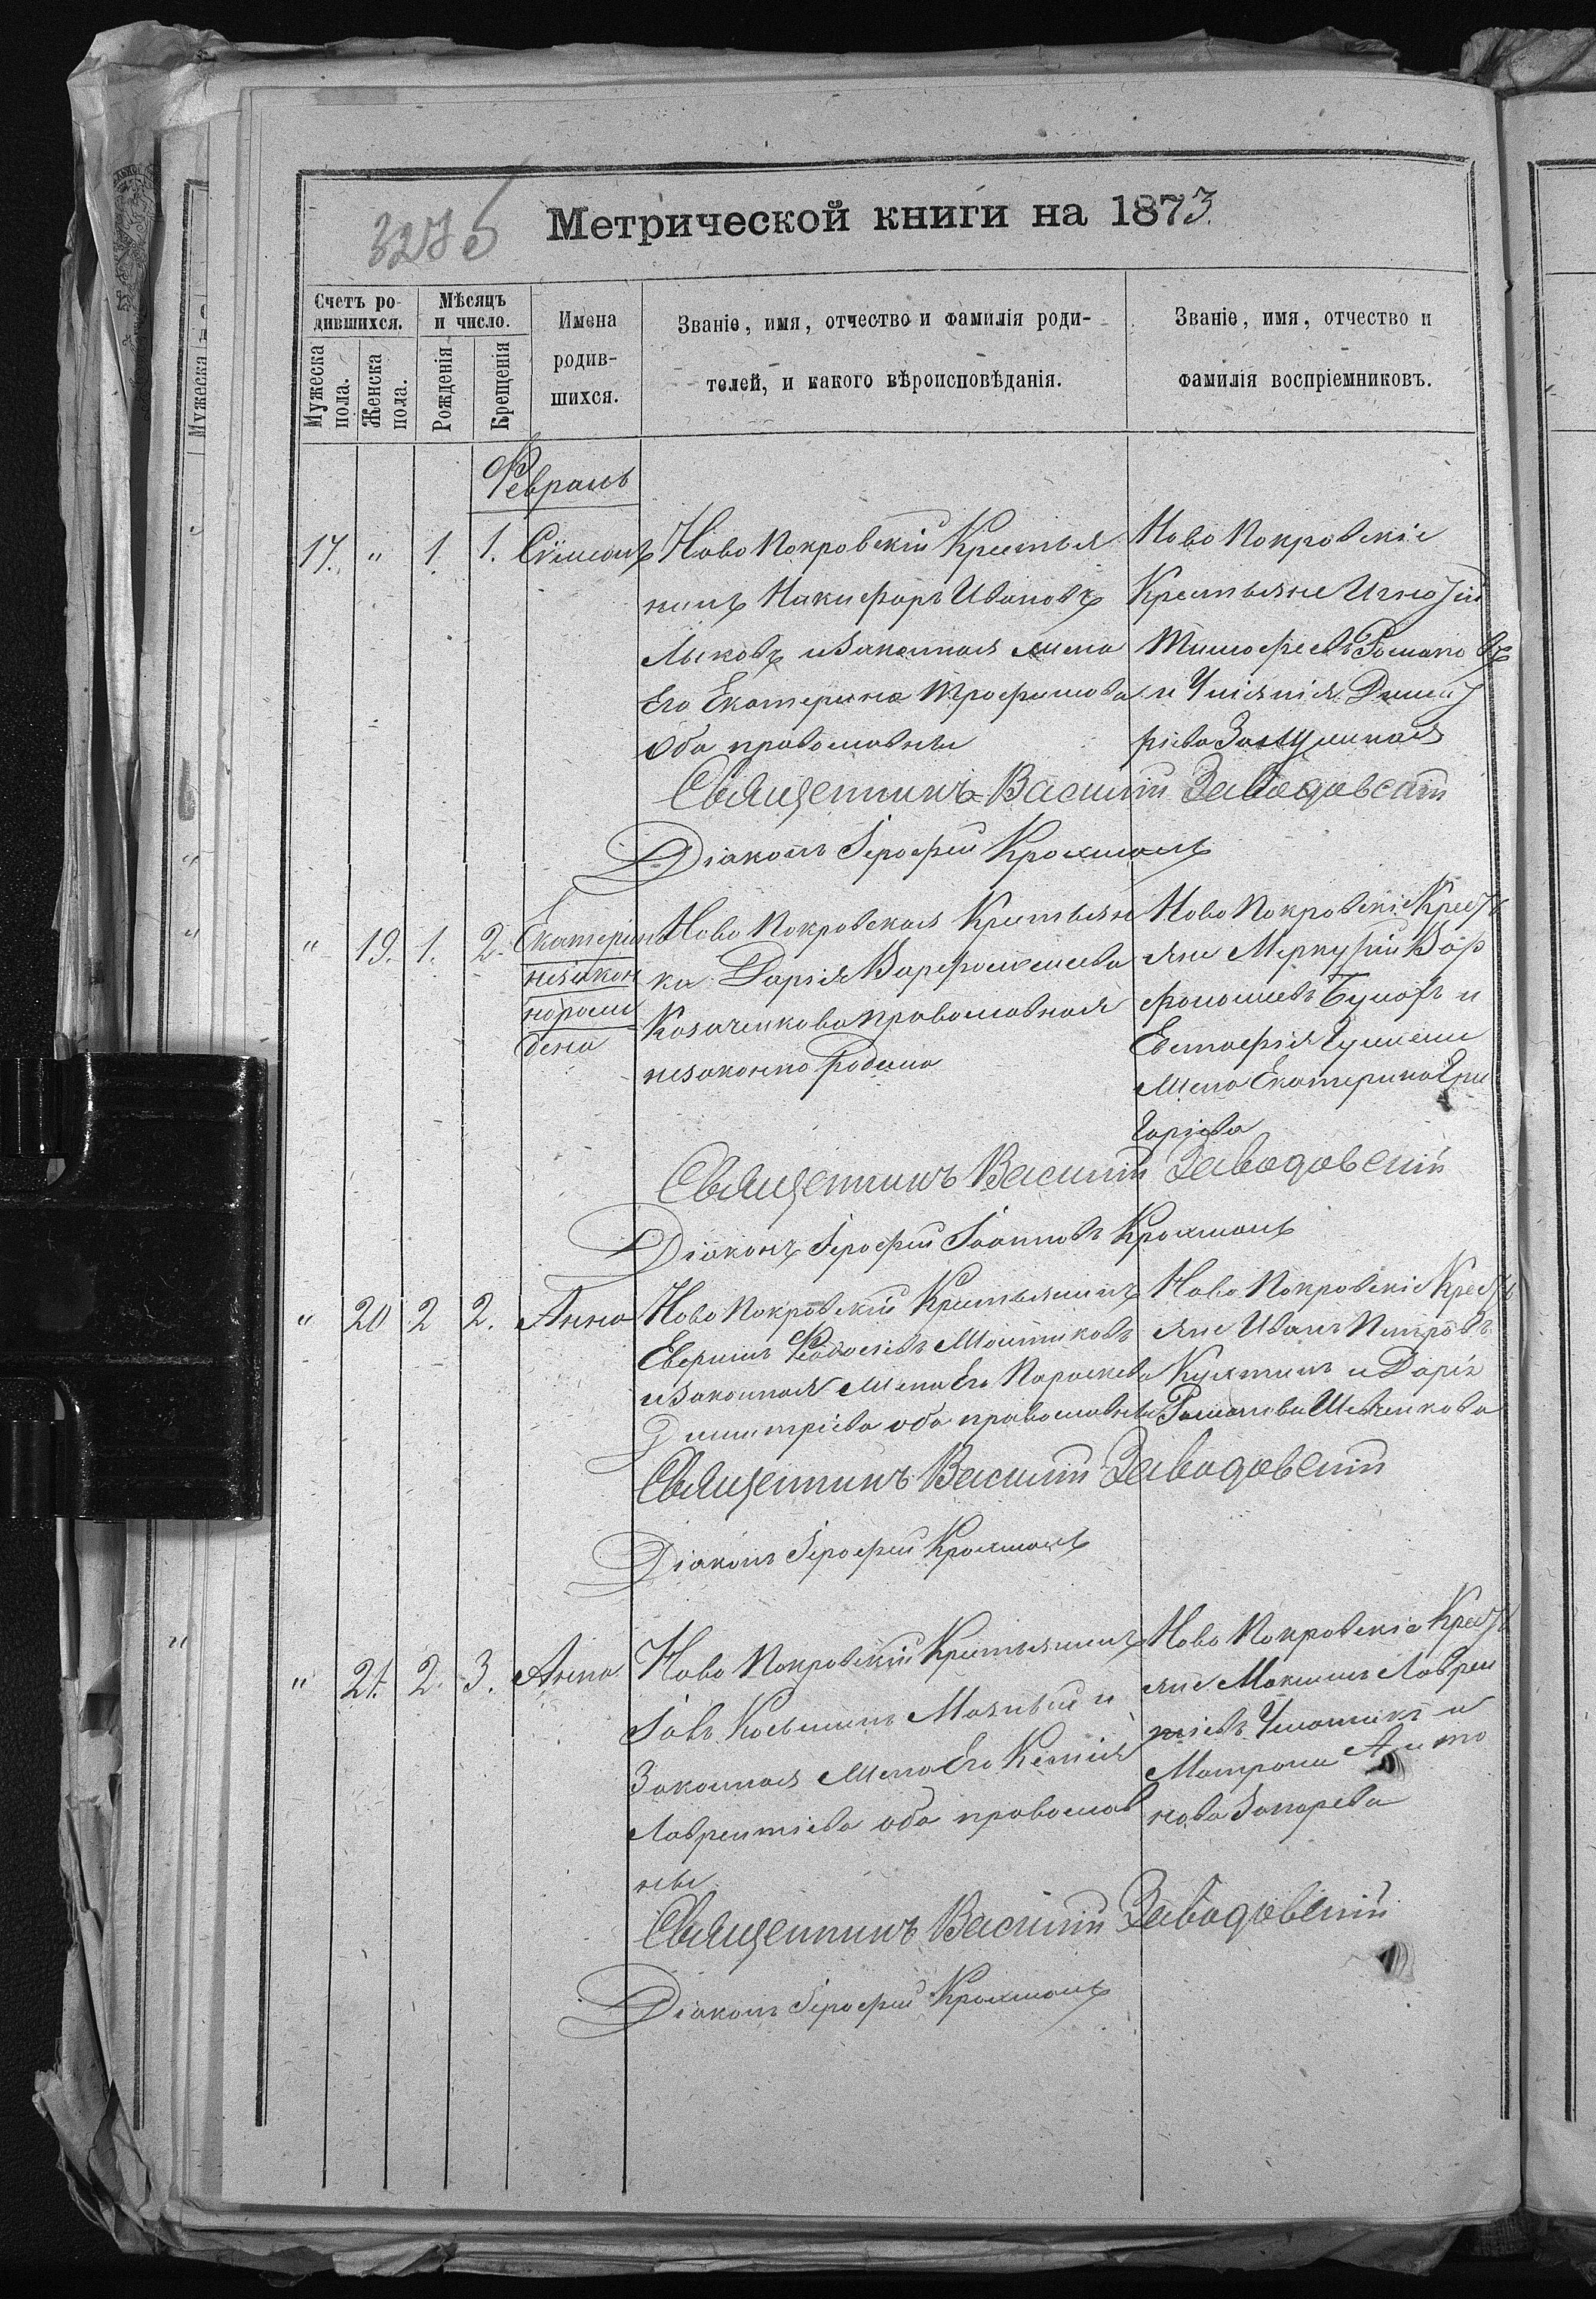 Метрической книги на 1873.
Счетъ ро-
дившихся.
Мѣсяцъ
и число.
Имена
родив-
шихся.
Званіе, имя, отчество и фамилія роди-
телей, и какого вѣроисповѣданія.
Званіе, имя, отчество и
фамилія воспріемниковъ.
Мужеска
пола.
Женска
пола.
Рожденія
Крещенія
Февраль
17. " 1. 1. Сѵмеонъ
Ново Покровскій Крестья
нинъ Никифоръ Ивановъ
Лыковъ и законная жена
Его Екатерина Трофимова
оба православны
Ново Покровскіе
Крестьяне Игнатій
Тимофеевъ Романовъ
и Дмит
ріева
Священникъ Василій Заводовскій
Діаконъ Іерофей Крохмаль
" 19. 1. 2. Екатерина
незакон
норож
дена
Ново Покровская Крестьян
ка Дарія Варфоломеева
Казаченкова православная
незаконно Родила
Ново Покровскіе Кресть
яне Меркурій Вар
фоломеевъ и
Евстафія
жена Екатерина Гри
горіева
Священникъ Василій Заводовскій
Діаконъ Іерофей Іоанновъ Крохмаль
" 20 2 2. Анна
Ново Покровскій Крестьянинъ
и законная жена Его Параскева
Димитріева оба православны
Ново Покровскіе Кресть
яне Иванъ Петровъ
и Дарія
Романова Шевченкова
Священникъ Василій Заводовскій
Діаконъ Іерофей Крохмаль
" 21. 2. 3. Анна
Ново Покровскій Крестьянинъ
Іовъ Косьминъ и
Законная жена Его Ксенія
Лаврентіева оба православ
ны
Ново Покровскіе Кресть
яне Максимъ Лаврен
тіевъ и
Матрона Анто
нова
Священникъ Василій Заводовскій
Діаконъ Іерофей Крохмаль